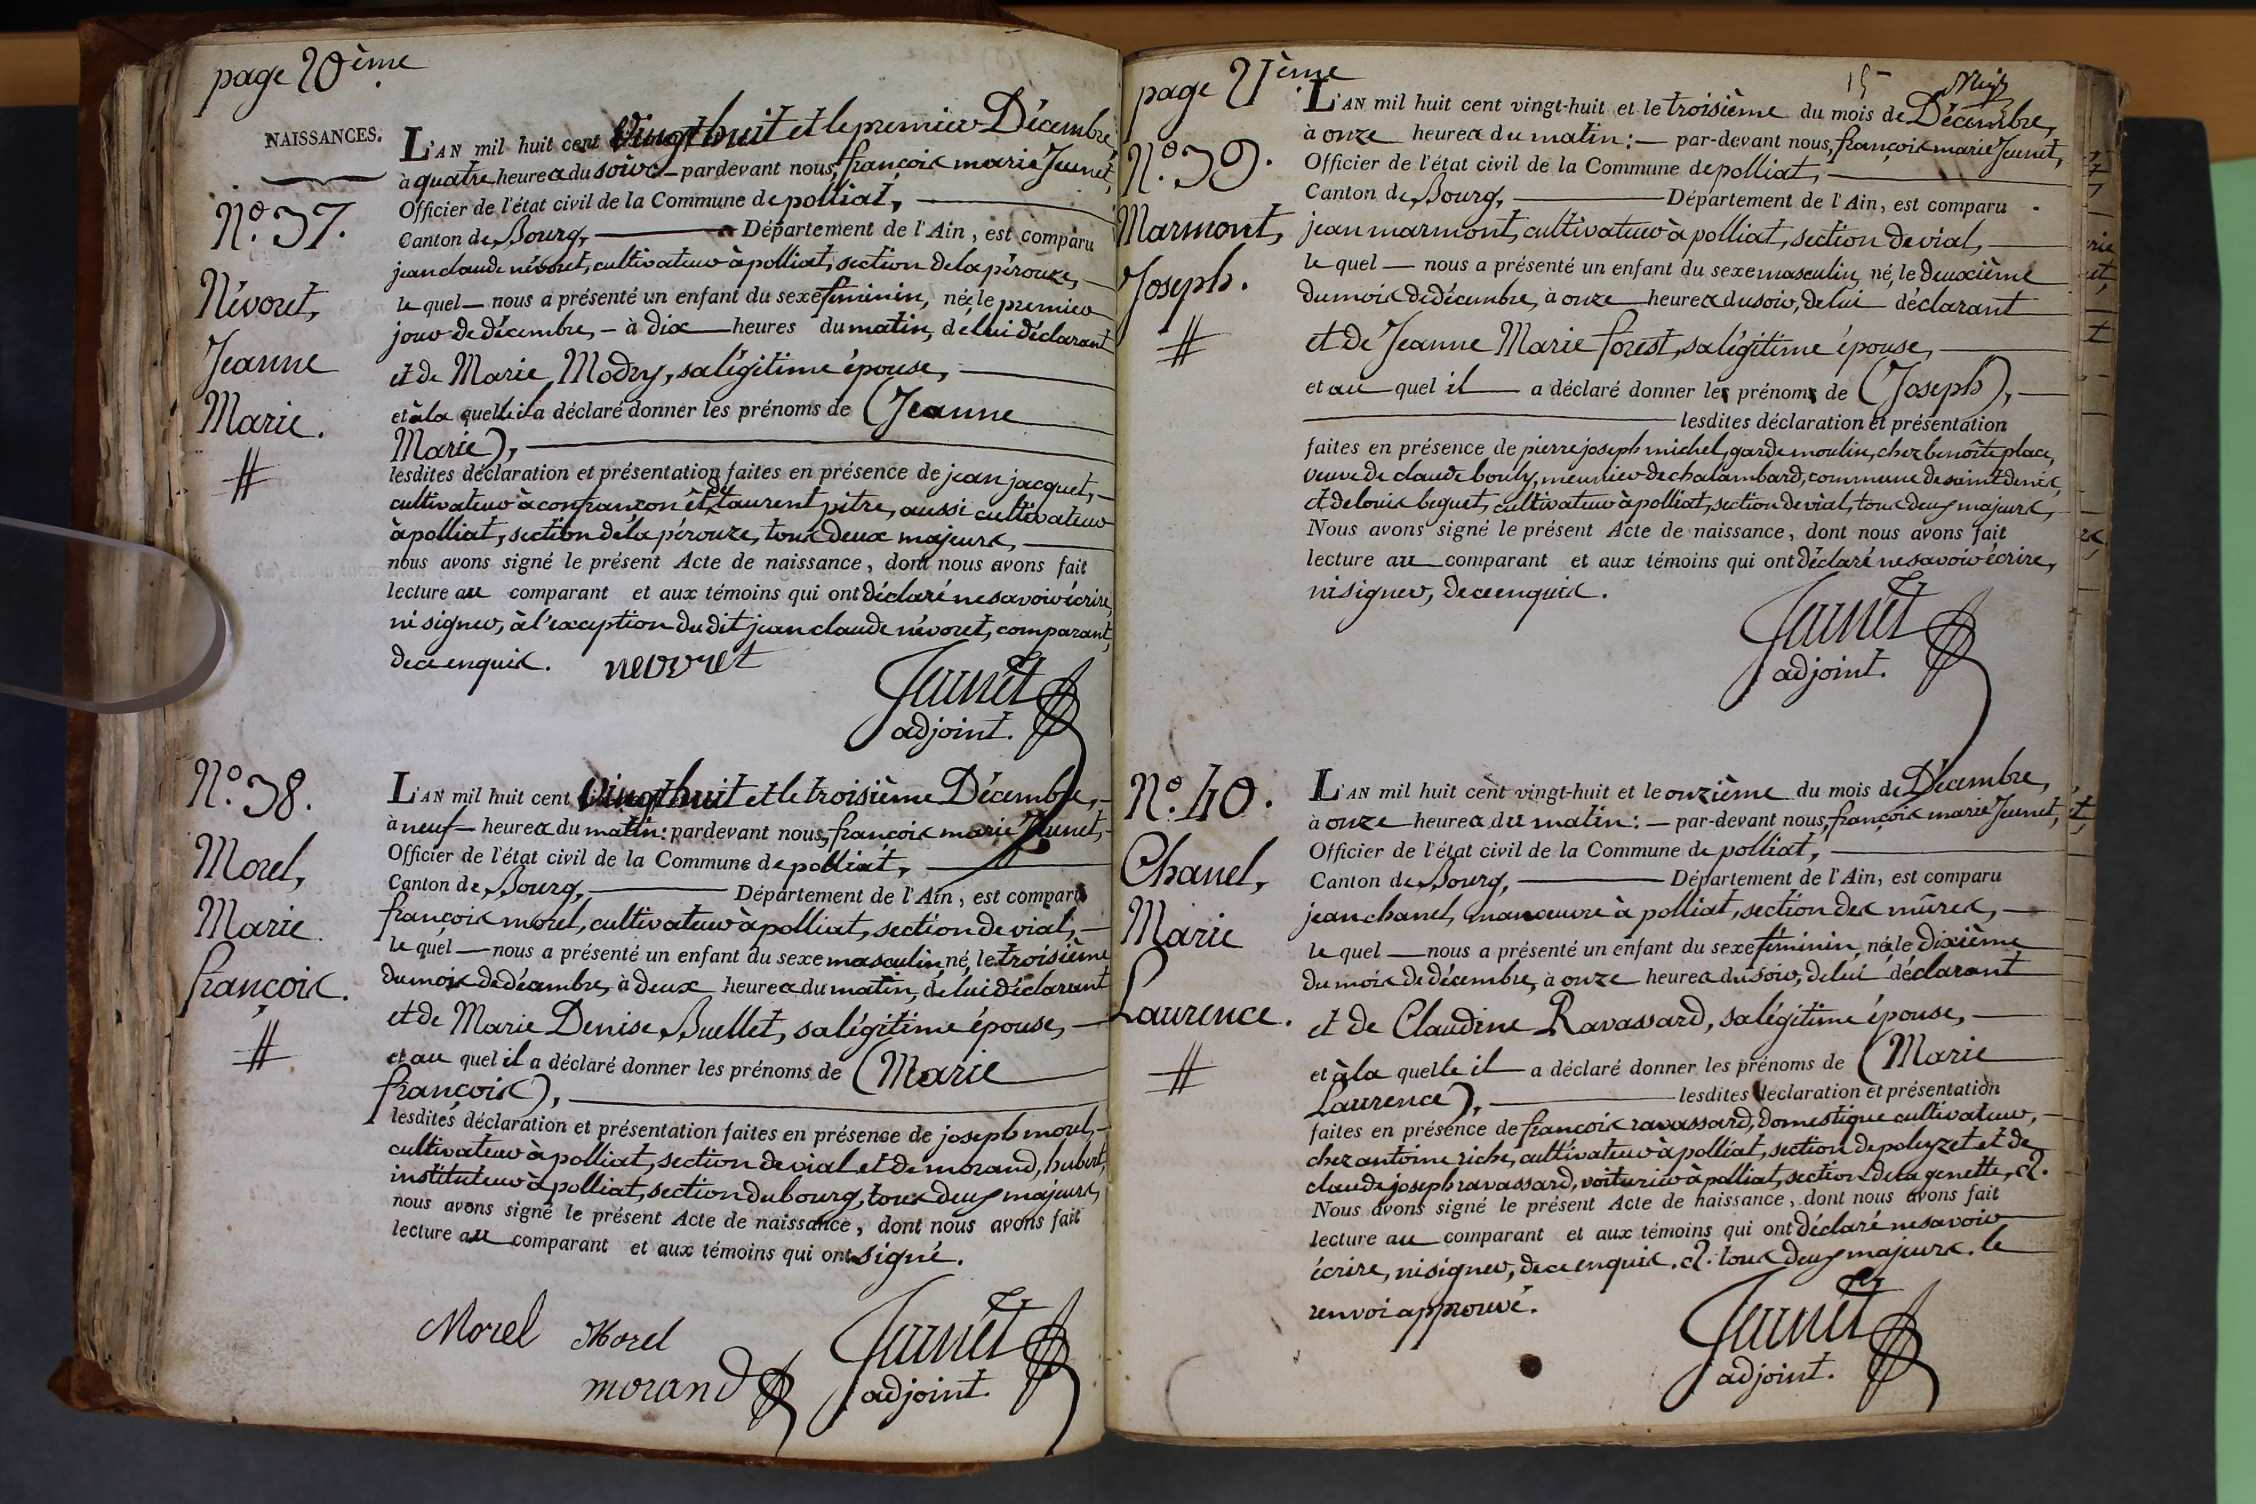 page 20ème
NAISSANCES.
N.° 37.
Névoret,
Jeanne
Marie.
L'AN mil huit cent Vingt huit et le premier Décembre,
à quatre heures du soir : pardevant nous, françois marie Jeunet,
Officier de l'état civil de la Commune de polliat,
Canton de Bourg, Département de l'Ain, est comparu
jean claude névoret, cultivateur à polliat, section de la pérouze,
le quel nous a présenté un enfant du sexe féminin, née, le premier
jour de décembre, à dix heures du matin, de lui déclarant
et de Marie Modry, sa légitime épouse,
et à la quelle il a déclaré donner les prénoms de (Jeanne
Marie),
lesdites déclaration et présentation faites en présence de jean jacquet,
cultivateur à confrançon et de laurent pitre, aussi cultivateur
à polliat, section de la pérouze, tous deux majeurs,
nous avons signé le présent Acte de naissance, dont nous avons fait
lecture au comparant et aux témoins qui ont déclaré ne savoir écrire,
ni signer, à l'exception du dit jean claude névoret, comparant,
de ce enquis. nevoret
Jeunet
adjoint.
N.° 38.
Morel,
Marie
françois.
L'AN mil huit cent Vingt huit et le troisième Décembre,
à neuf heures du matin : pardevant nous, françois marie Jeunet,
Officier de l'état civil de la Commune de polliat,
Canton de Bourg, Département de l'Ain, est comparu
françois morel, cultivateur à polliat, section de vial,
le quel nous a présenté un enfant du sexe masculin, né, le troisième
du mois de décembre, à deux heures du matin, de lui déclarant
et de Marie Denise Buellet, sa légitime épouse,
et au quel il a déclaré donner les prénoms de (Marie
françois),
lesdites déclaration et présentation faites en présence de joseph morel,
cultivateur à polliat, section de vial et de morand, hubert,
instituteur à polliat, section du bourg, tous deux majeurs,
nous avons signé le présent Acte de naissance, dont nous avons fait
lecture au comparant et aux témoins qui ont signé.
Morel Morel
morand
Jeunet
adjoint.
page 21ème
15
N.° 39.
Marmont,
Joseph.
L'AN mil huit cent vingt-huit et le troisième du mois de Décembre,
à onze heures du matin : par-devant nous, françois marie Jeunet,
Officier de l'état civil de la Commune de polliat,
Canton de Bourg, Département de l'Ain, est comparu
jean marmont, cultivateur à polliat, section de vial,
le quel nous a présenté un enfant du sexe masculin, né, le deuxième
du mois de décembre, à onze heures du soir, de lui déclarant
et de Jeanne Marie forest, sa légitime épouse,
et au quel il a déclaré donner les prénoms de (Joseph),
lesdites déclaration et présentation
faites en présence de pierre joseph michel, garde moulin, chez benoîte place,
veuve de claude bouly, meunier de chalambard, commune de saint denis,
et de louis beguet, cultivateur à polliat, section de vial, tous deux majeurs,
Nous avons signé le présent Acte de naissance, dont nous avons fait
lecture au comparant et aux témoins qui ont déclaré ne savoir écrire,
ni signer, de ce enquis.
Jeunet
adjoint.
N.° 40.
Chanel,
Marie
Laurence.
L'AN mil huit cent vingt-huit et le onzième du mois de Décembre,
à onze heures du matin : par-devant nous, françois marie Jeunet,
Officier de l'état civil de la Commune de polliat,
Canton de Bourg, Département de l'Ain, est comparu
jean chanel, manœuvre à polliat, section des mûres,
le quel nous a présenté un enfant du sexe féminin, née, le dixième
du mois de décembre, à onze heures du soir, de lui déclarant
et de Claudine Ravassard, sa légitime épouse,
et à la quelle il a déclaré donner les prénoms de (Marie
Laurence), lesdites déclaration et présentation
faites en présence de françois ravassard, domestique cultivateur,
chez antoine riche, cultivateur à polliat, section de poluyzet et de
claude joseph ravassard, voiturier à polliat, section de la genette,
Nous avons signé le présent Acte de naissance, dont nous avons fait
lecture au comparant et aux témoins qui ont déclaré ne savoir
écrire, ni signer, de ce enquis. tous deux majeurs. le
renvoi approuvé.
Jeunet
adjoint.